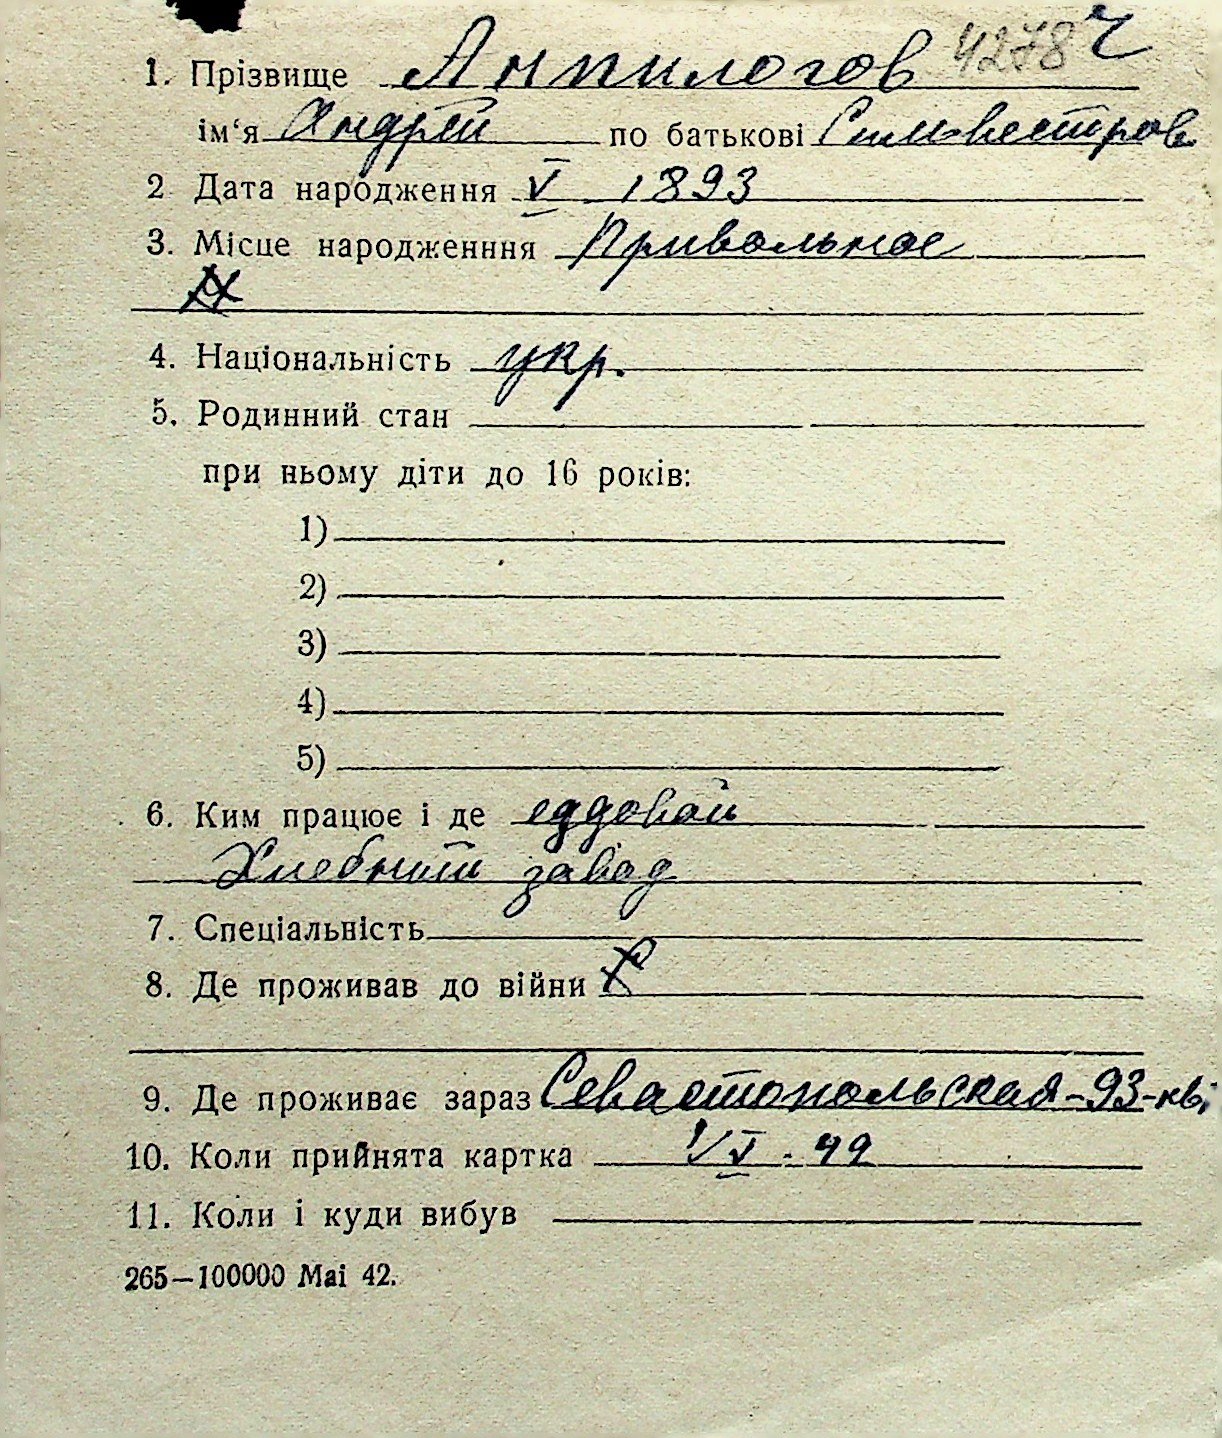 1. Прізвище Анпилогов 4278 ч
ім‘я Андрей по батькові Сильвестров
2 Дата народження V 1893
3. Місце народженння Привольное
4. Національність укр.
5. Родинний стан
при ньому діти до 16 років:
1)
2)
3)
4)
5)
6. Ким працює і де ездовой
Хлебний завод
7. Спеціальність
8. Де проживав до війни
9. Де проживає зараз Севастопольская-93-кв,
10. Коли прийнята картка
11. Коли і куди вибув
265—100000 Mai 42.